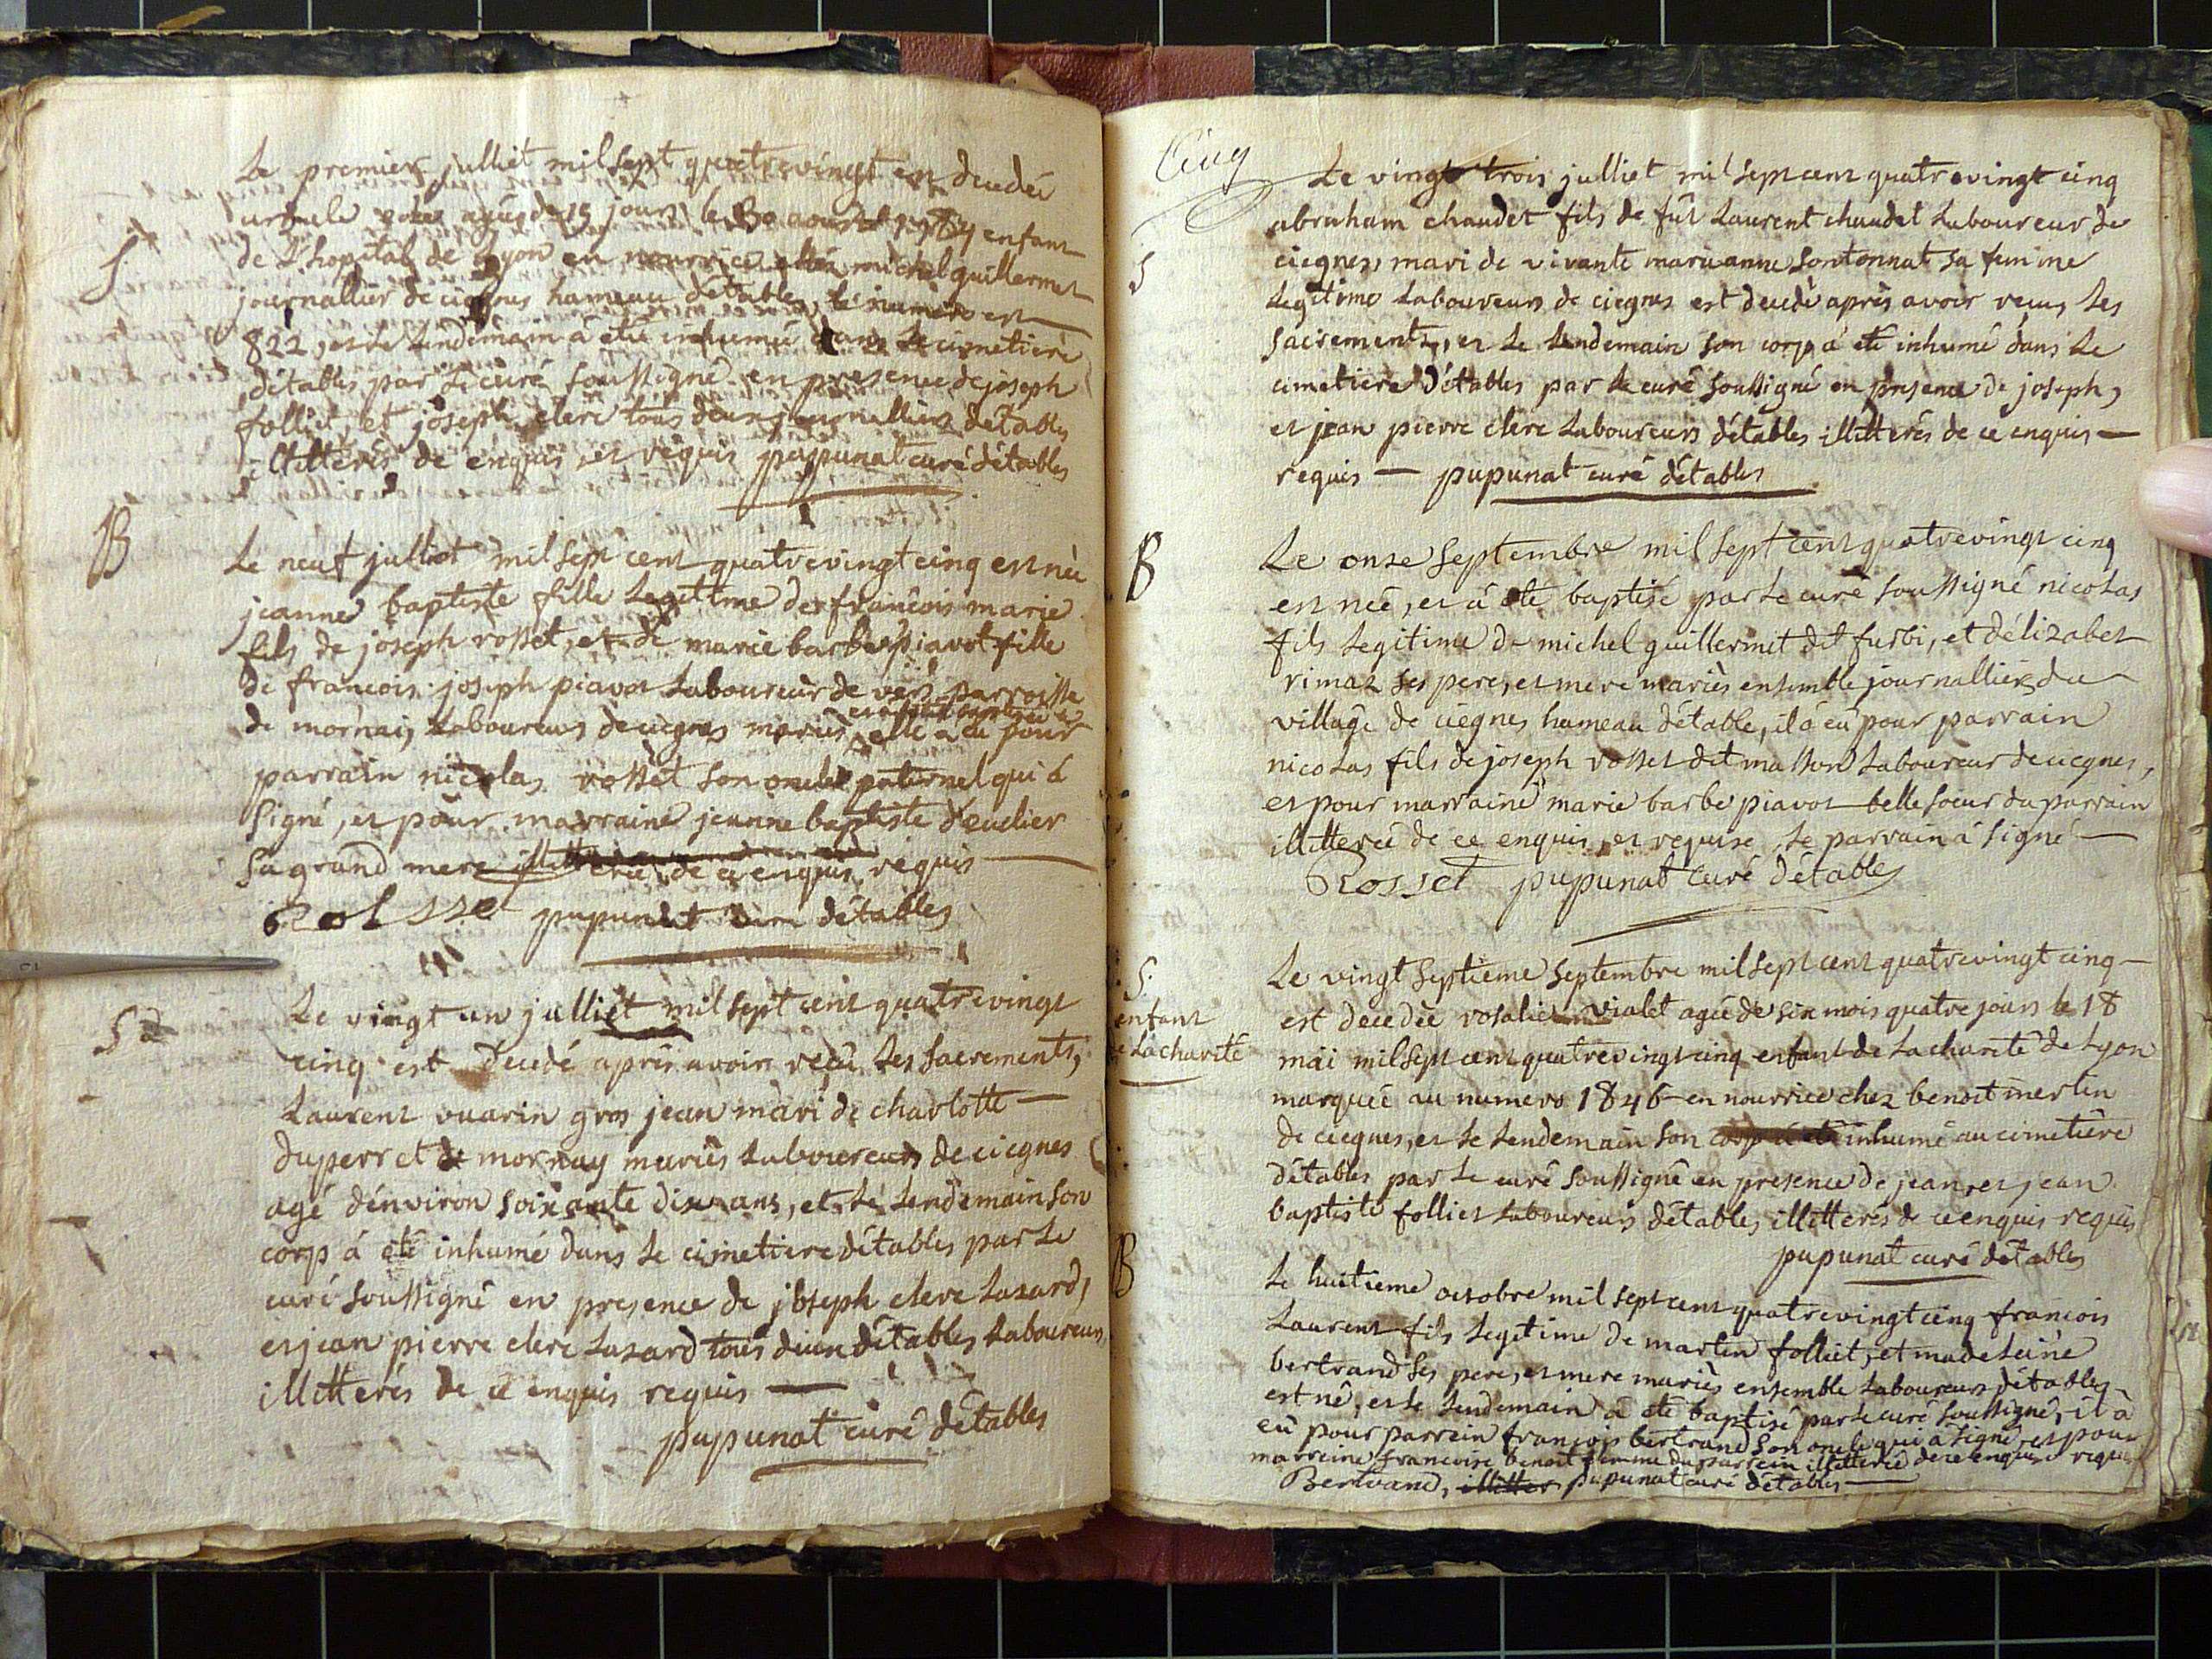 Le premier julliet mil sept quatrevingt est decedée
ursule agée de 15 jours le 30 enfant
de L'hopital de Lyon en nourrice chés michel guillermet
journallier de ciegnes hameau détables, le numero est
822, et le lendemain à été inhumé dans le cimetiere
détables par le curé soussigné en presence de joseph
folliet, et joseph clerc tous deux journalliers détables
illitterés de enquis, et requis pupunat curé détables
B
Le neuf julliet mil sept cent quatrevingt cinq est née
jeanne baptiste fille Legitime de françois marie
fils de joseph rosset, et de marie barbe piavot fille
de francois joseph piavot Laboureur de vers parroisse
de mornay Laboureurs de ciegnes mariés elle a eu pour
parrain nicolas rosset son oncle paternel qui à
signé, et pour marraine jeanne baptiste
sa grand mere illitterée de ce enquis requis
pupunat curé détables
S
Le vingt un julliet mil sept cent quatrevingt
cinq est decedé après avoir reçu les sacrements,
Laurent vuarin gros jean mari de charlotte
duperret de mornay mariés Laboureurs de ciegnes
agé dénviron soixante dix ans, et le lendemain son
corp à été inhumé dans le cimetiere détables par le
curé soussigné en presence de joseph clerc Lazard,
et jean pierre clerc Lazard tous deux détables Laboureurs
illitterés de ce enquis requis
pupunat curé détables
Cinq
S
Le vingt trois julliet mil sept cent quatrevingt cinq
abraham chaudet fils de fût Laurent chaudet Laboureur de
ciegnes, mari de vivante marianne sontonnat sa femme
Legitime Laboureurs de ciegnes est decedé après avoir reçus les
sacrements, et le lendemain son corp à été inhumé dans le
cimetiere détables par le curé soussigné en presence de joseph,
et jean pierre clerc Laboureurs détables illitterés de ce enquis
requis pupunat curé détables
B
Le onze septembre mil sept cent quatrevingt cinq
est née, et à été baptisé par le curé soussigné nicolas
fils Legitime de michel guillermet dit furbi, et délizabet
rimaz ses pere, et mere mariés ensemble journalliers du
village de ciegnes hameau détable, il à eu pour parrain
nicolas fils de joseph rosset dit masson Laboureur de ciegnes,
et pour marraine marie barbe piavot belle soeur du parrain
illitterée de ce enquis, et requise, le parrain à signé
Rosset pupunat curé détables
S.
enfant
de La charité
Le vingt septieme septembre mil sept cent quatrevingt cinq
est decedée rosalie vialet agée de six mois quatre jours le 18
mai mil sept cent quatrevingt cinq enfant de La charité de Lyon
marquée au numero 1846 en nourrice chez benoit mertin
de ciegnes, et le lendemain son corp à été inhumé au cimetiere
détables par le curé soussigné en presence de jean, et jean
baptiste folliet Laboureurs détables illitterés de ce enquis requis
pupunat curé détables
B
Le huitieme octobre mil sept cent quatrevingt cinq francois
Laurent fils Legitime de martin folliet, et madeleine
bertrand ses pere, et mere mariés ensemble Laboureurs détables
est né, et le lendemain à été baptisé par le curé soussigné, il à
eu pour parrein françois bertrand son oncle qui à signé, et pour
marreine francoise benoit femme du parrein illitterée de ce enquise requise
Bertrand, illitter pupunat curé détables